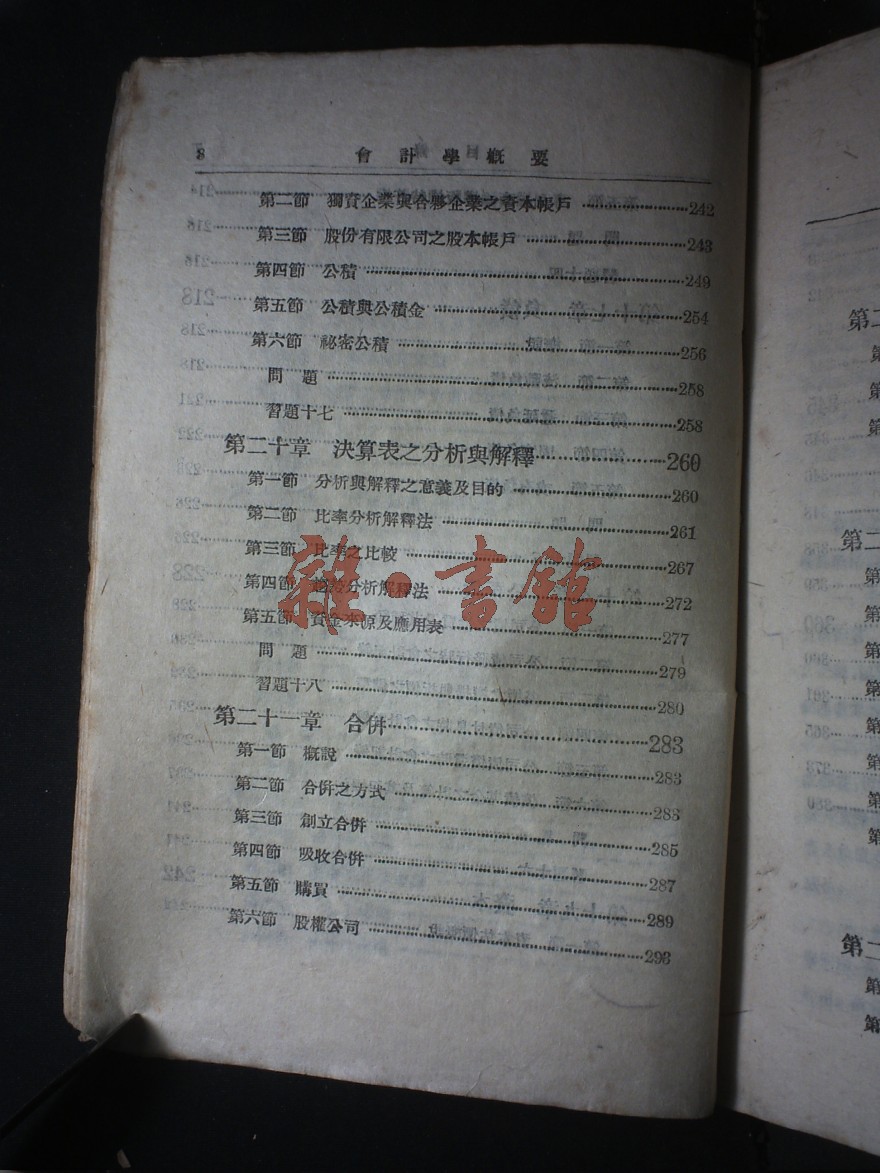 8 會計學概要
第二節 獨資企業與合夥企業之資本帳戶 242
第三節 股份有限公司之股本帳戶 243
第四節 公積 249
第五節 公積與公積金 254
第六節 祕密公積 256
問題 258
習題十七 258
第二十章 決算表之分析與解釋 260
第一節 分析與解釋之意義及目的 260
第二節 比率分析解釋法 261
第三節 比率之比較 267
第四節 分析解釋法 272
第五節 資金來源及應用表 277
問題 279
習題十八 280
第二十一章 合併 283
第一節 概說 283
第二節 合併之方式
第三節 創立合併 285
第四節 吸收合併 287
第五節 購買 289
第六節 股權公司
雜·書館